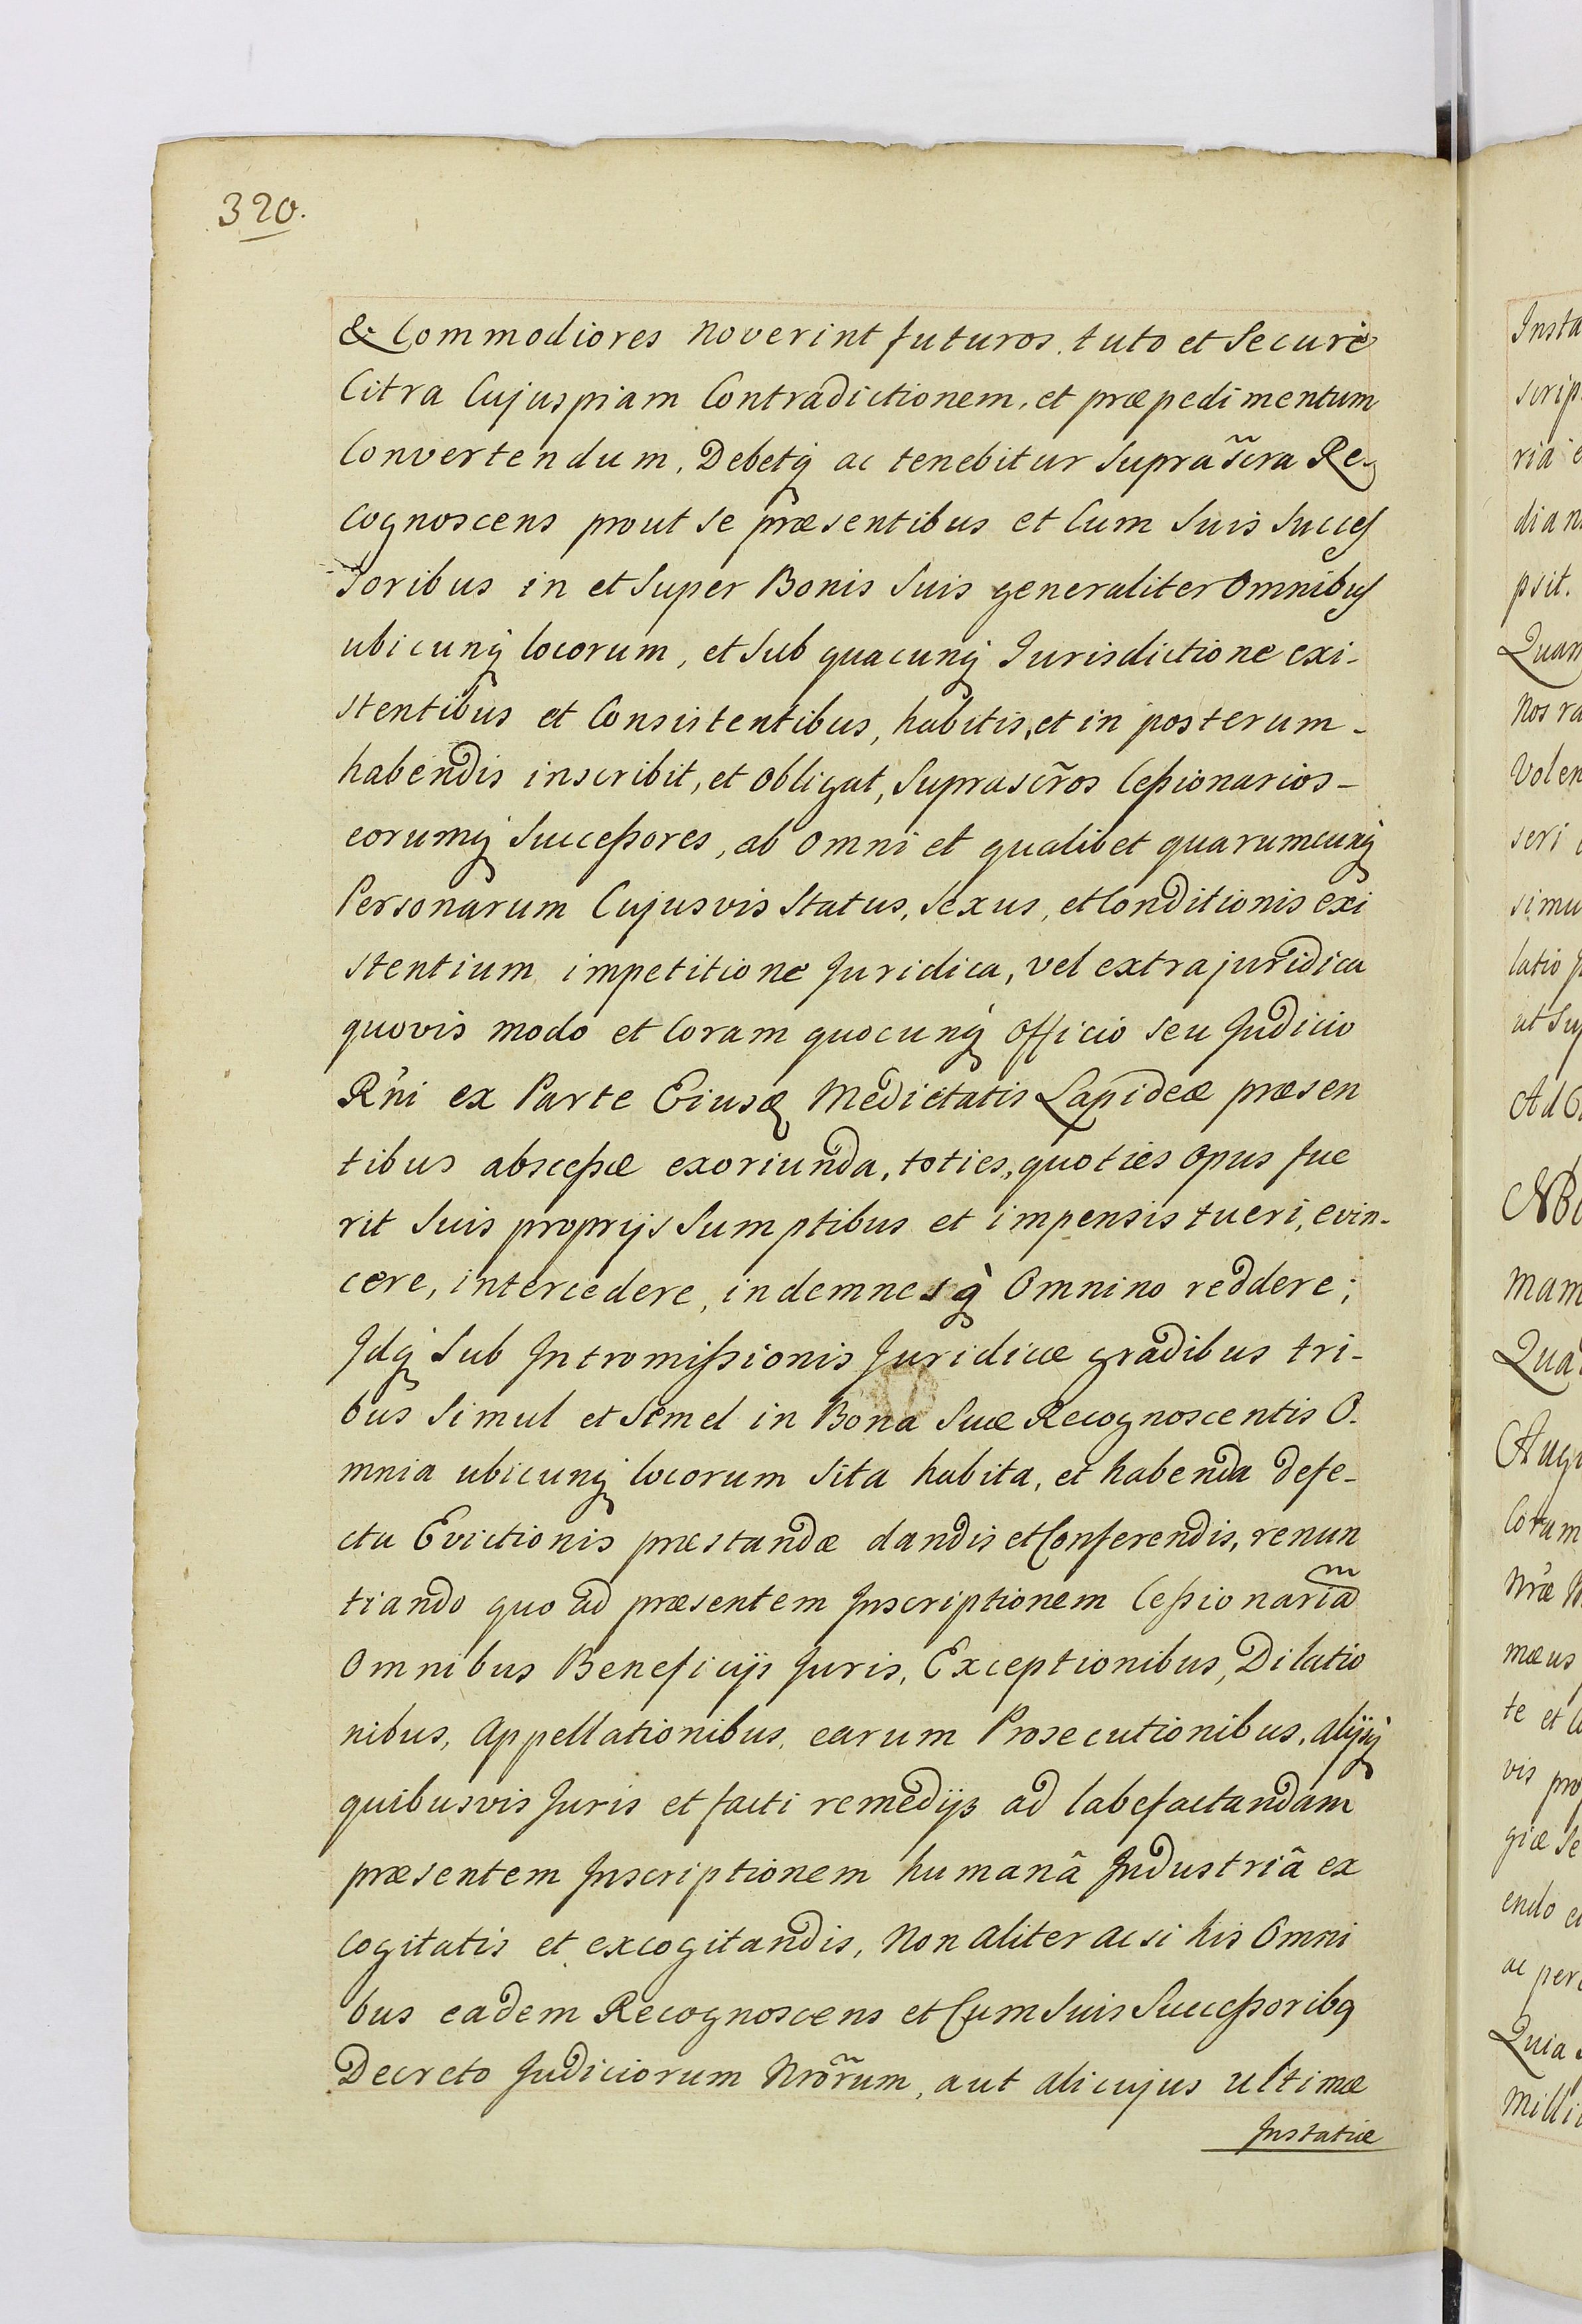 320.
& Commodiores noverint futuros, tuto et Securè
Citra Cujuspiam Contradictionem, et præpedimentum
Convertendum, Debetq́ ac tenebitur Suprascr̃a Re-
cognoscens prout se præsentibus et Cum Suis Succes
soribus in et Super Bonis Suis generaliter Omnibus
ubicunq́ locorum, et Sub quacunq́ Jurisdictione exi-
stentibus et Consistentibus, habitis, et in posterum -
habendis inscribit, et Obligat, Suprascr̃os Ceßionarios -
eorumq́ Succeßores, ab Omni et qualibet quarumcunq́
Personarum Cujusvis Status, Sexus, et Conditionis exi
stentium impetitione Juridica, vel extrajuridica
quovis modo et Coram quocunq́ Officio seu Judicio
R'ni ex Parte Eiusq́ Medietatis Lapideæ præsen
tibus absceßæ exoriunda, toties, quoties Opus fue
rit Suis proprijs Sumptibus et impensis tueri, evin-
cere, intercedere, indemnesq́ Omnino reddere;
Jdq́ Sub Jntromißionis Juridicæ gradibus tri-
bus Simul et Semel in Bona Suæ Recognoscentis O-
mnia ubicunq́ locorum Sita habita, et habenda defe-
ctu Evictionis præstandæ dandis et Conferendis, renun
tiando quo ad præsentem Jnscriptionem Ceßionariam
Omnibus Beneficijs Juris, Exceptionibus, Dilatio
nibus, Appellationibus, earum Prosecutionibus, alijsq́
quibusvis Juris et facti remedijs ad labefactandam
præsentem Jnscriptionem humanâ Jndustriâ ex
cogitatis et excogitandis, Non aliter ac si his Omni
bus eadem Recognoscens et Cum Suis Succeßoribꝰ
Decreto Judiciorum Nrõrum, aut alicujus ultimæ
Jnstatiæ
Insta
scrip
ria e
dian
psit.
Quam
Nos ra
Volen
seri
simu
latio
ut Su
Ad
mam
Qua
Coram
Nræ
mæus
te et
vis pro
giæ Se
endo
ac per
Quia
Milli